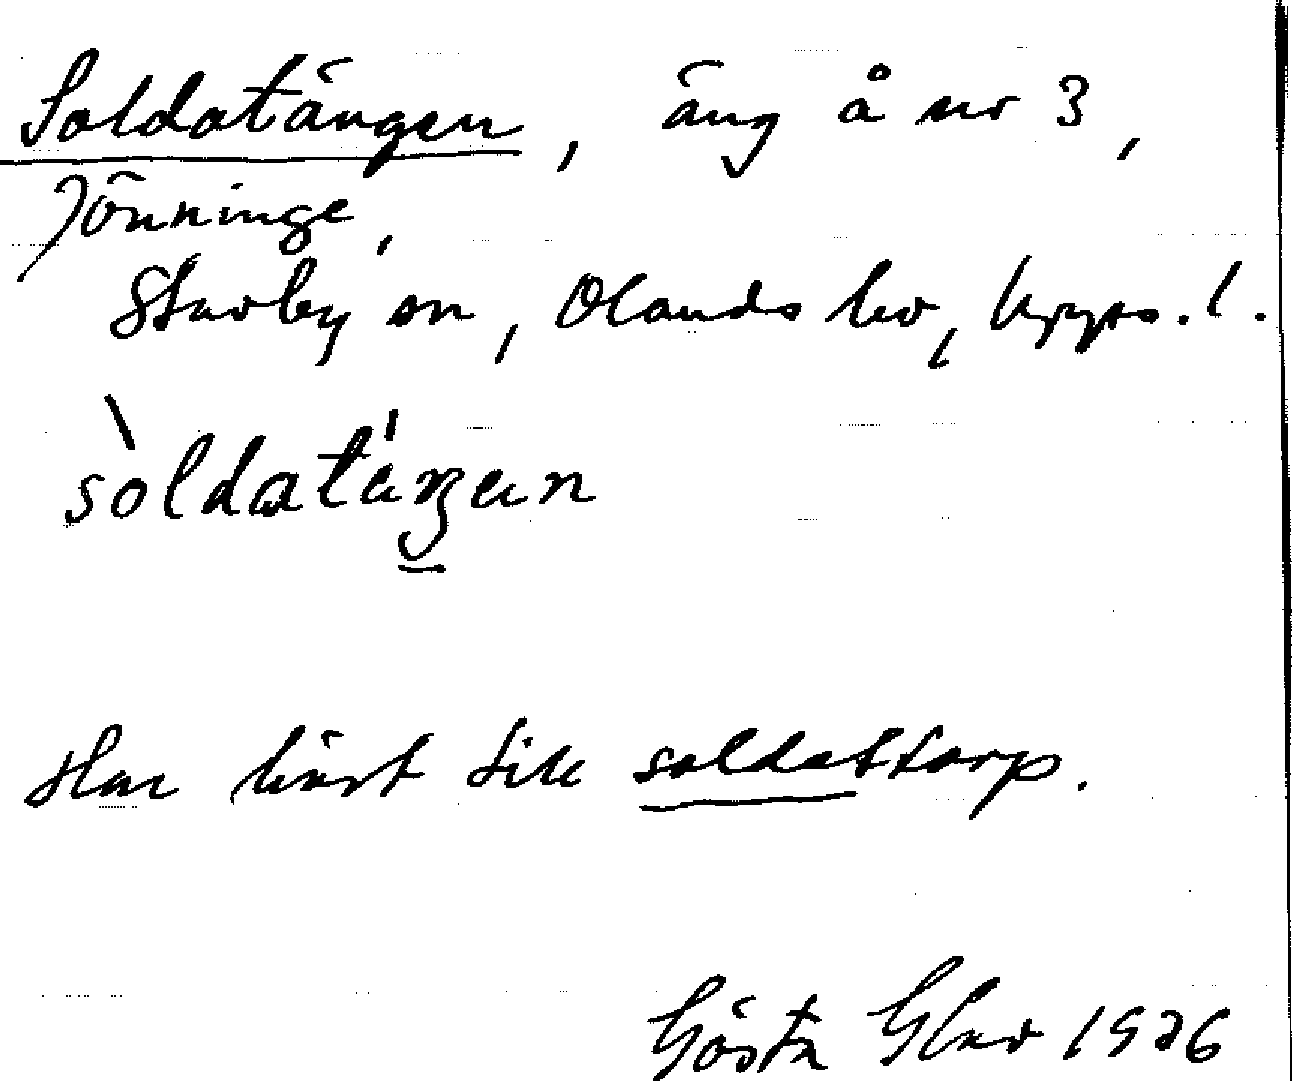 Soldatängen, äng å nr 3,
Jönninge,
Stavby sn, Olands hd, Upps. l.
sòldatáŋen
Har hört till soldattorp.
Gösta 1926